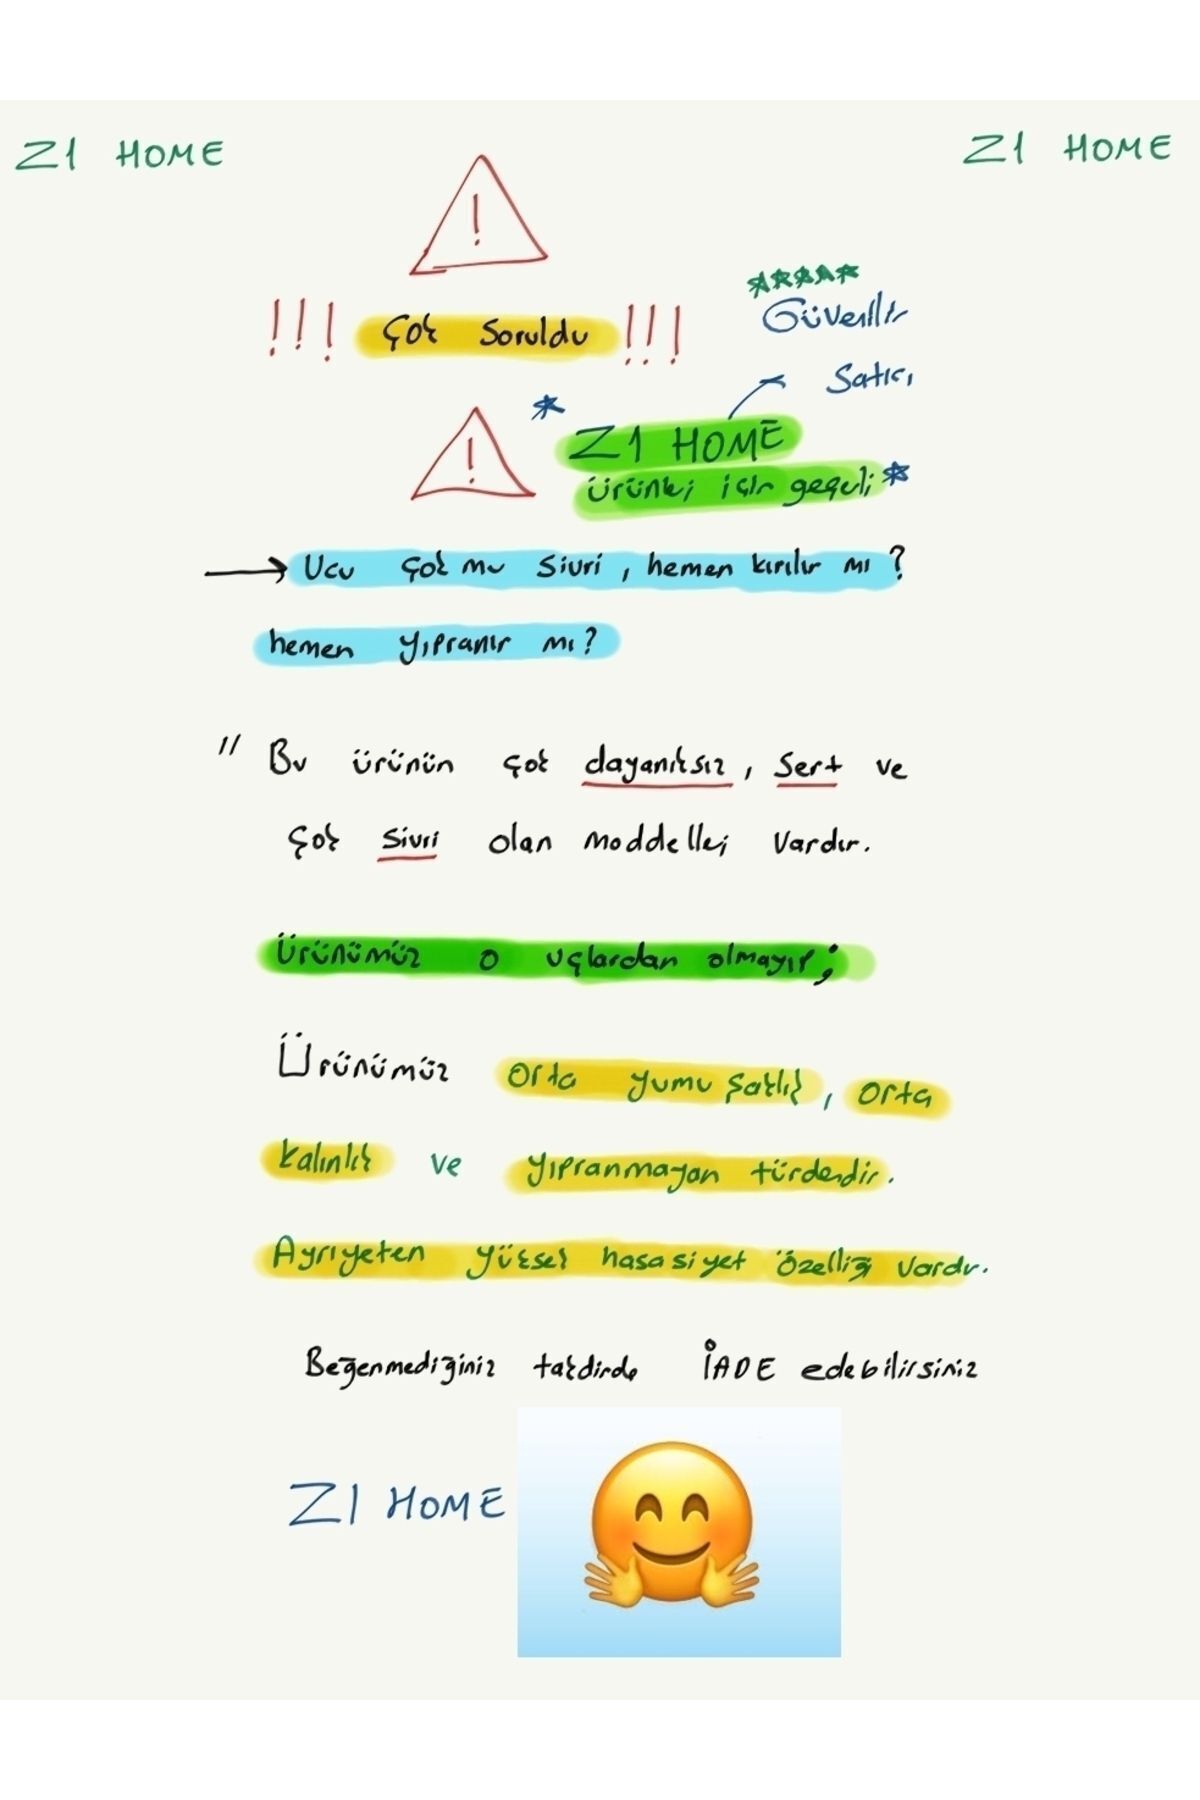 Z1 HOME
Z1 HOME
!
!!! Çok Soruldu !!!
Güvenilir
Satıcı
!
* Z1 HOME
ürünleri için geçerli *
→ Ucu çok mu sivri, hemen kırılır mı?
hemen yıpranır mı?
" Bu ürünün çok dayanıksız, sert ve
çok sivri olan moddelleri vardır.
Ürünümüz o uçlardan olmayıp;
Ürünümüz orta yumuşaklık, orta
kalınlık ve yıpranmayan türdendir.
Ayrıyeten yüksek hasasiyet özelliği vardır.
Beğenmediğiniz takdirde İADE edebilirsiniz
Z1 HOME